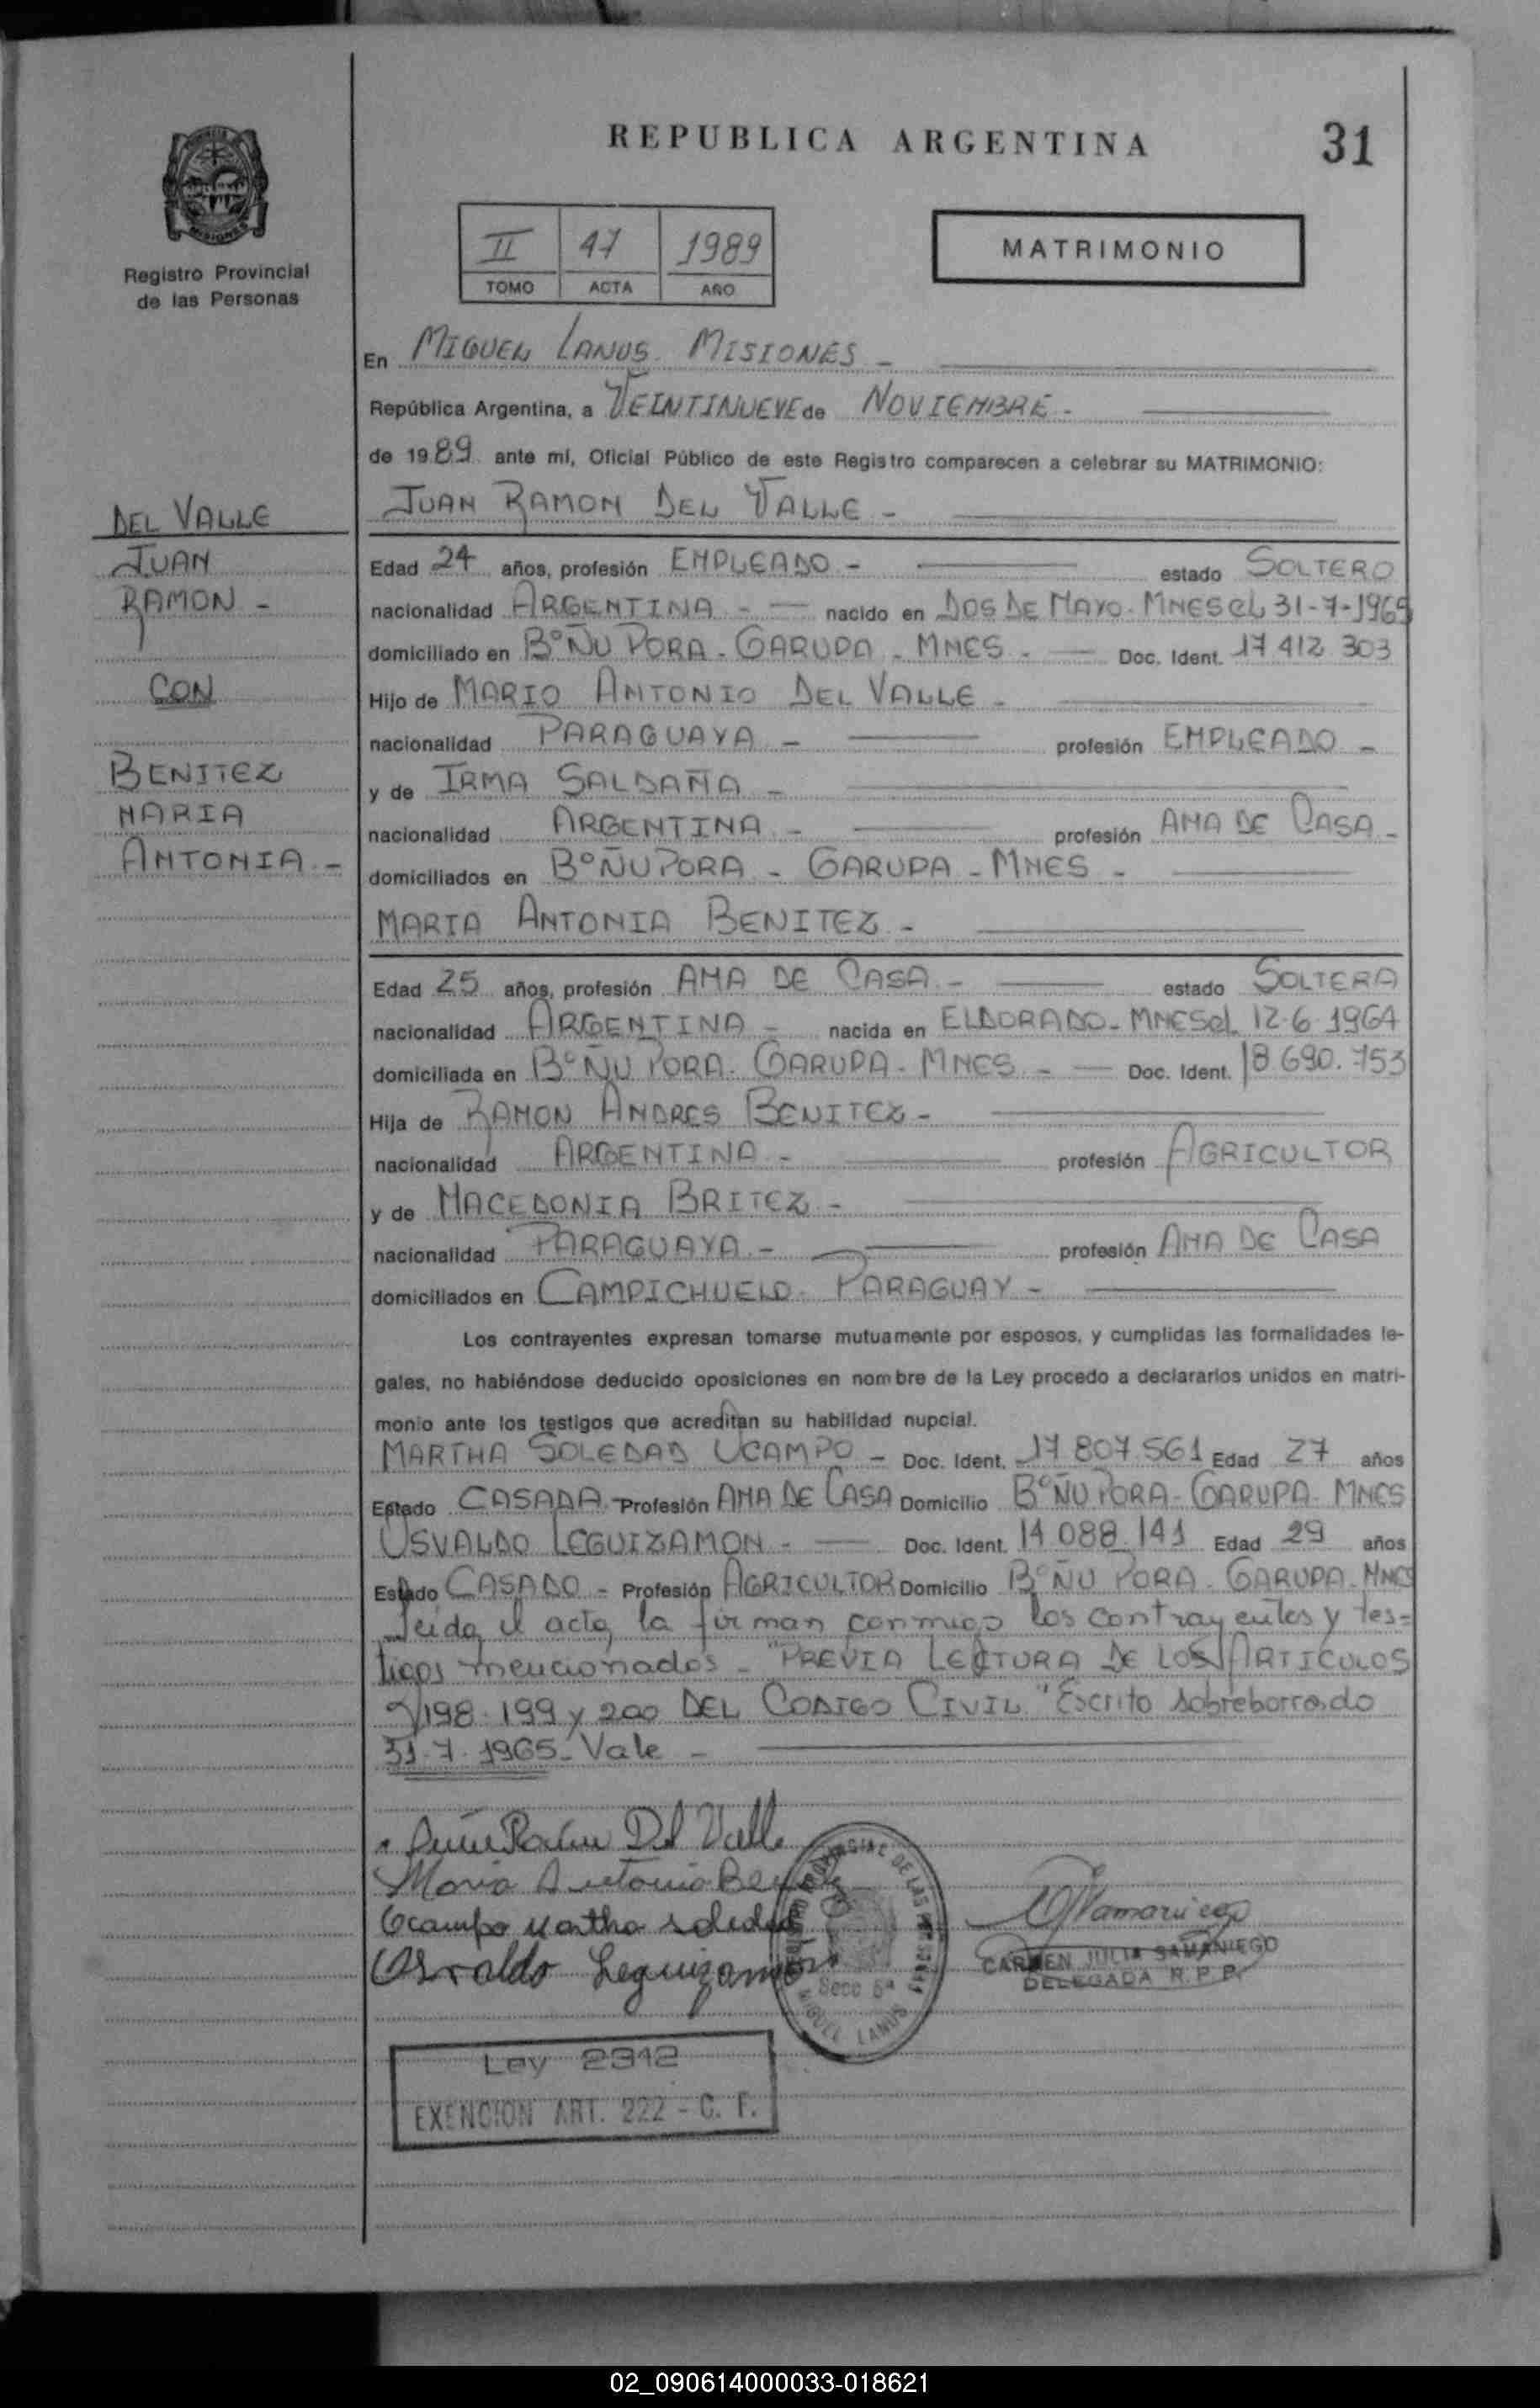 REPUBLICA ARGENTINA
31
MISIONES
Registro Provincial
de las Personas
II 47 1989
TOMO ACTA AÑO
MATRIMONIO
En MIGUEL LANUS. MISIONES -
República Argentina, a VEINTINUEVE de NOVIEMBRE -
de 1989 ante mí, Oficial Público de este Registro comparecen a celebrar su MATRIMONIO:
JUAN RAMON DEL VALLE -
DEL VALLE
JUAN
RAMON -
CON
BENITEZ
MARIA
ANTONIA -
Edad 24 años, profesión EMPLEADO - estado SOLTERO
nacionalidad ARGENTINA - nacido en DOS DE MAYO - MNES el 31-7-1965
domiciliado en B° ÑU PORA - GARUPA - MNES - Doc. Ident. 17 412 303
Hijo de MARIO ANTONIO DEL VALLE -
nacionalidad PARAGUAYA - profesión EMPLEADO -
y de IRMA SALDAÑA -
nacionalidad ARGENTINA - profesión AMA DE CASA -
domiciliados en B° ÑU PORA - GARUPA - MNES -
MARIA ANTONIA BENITEZ -
Edad 25 años, profesión AMA DE CASA - estado SOLTERA
nacionalidad ARGENTINA - nacida en ELDORADO - MNES el 12-6-1964
domiciliada en B° ÑU PORA - GARUPA - MNES - Doc. Ident. 18 690.753
Hija de RAMON ANDRES BENITEZ -
nacionalidad ARGENTINA - profesión AGRICULTOR
y de MACEDONIA BRITEZ -
nacionalidad PARAGUAYA - profesión AMA DE CASA
domiciliados en CAMPICHUELO - PARAGUAY -
Los contrayentes expresan tomarse mutuamente por esposos, y cumplidas las formalidades le-
gales, no habiéndose deducido oposiciones en nombre de la Ley procedo a declararlos unidos en matri-
monio ante los testigos que acreditan su habilidad nupcial.
MARTHA SOLEDAD OCAMPO - Doc. Ident. 17 807.561 Edad 27 años
Estado CASADA - Profesión AMA DE CASA Domicilio B° ÑU PORA - GARUPA - MNES
OSVALDO LEGUIZAMON - Doc. Ident. 14 088.141 Edad 29 años
Estado CASADO - Profesión AGRICULTOR Domicilio B° ÑU PORA - GARUPA - MNES
Leida el acta, la firman conmigo los contrayentes y tes=
tigos mencionados - "PREVIA LECTURA DE LOS ARTICULOS
198 - 199 y 200 DEL CODIGO CIVIL" Escrito sobreborrado
31-7-1965 - Vale -
Ramon Del Valle
Maria Antonia Benitez
Ocampo Martha Soledad
Osvaldo Leguizamon
REGISTRO PROVINCIAL DE LAS PERSONAS
Secc 5ª
MIGUEL LANUS
CARMEN JULIA SAMANIEGO
DELEGADA R.P.P.
Ley 2312
EXENCION ART. 222 - C. F.
02_090614000033-018621